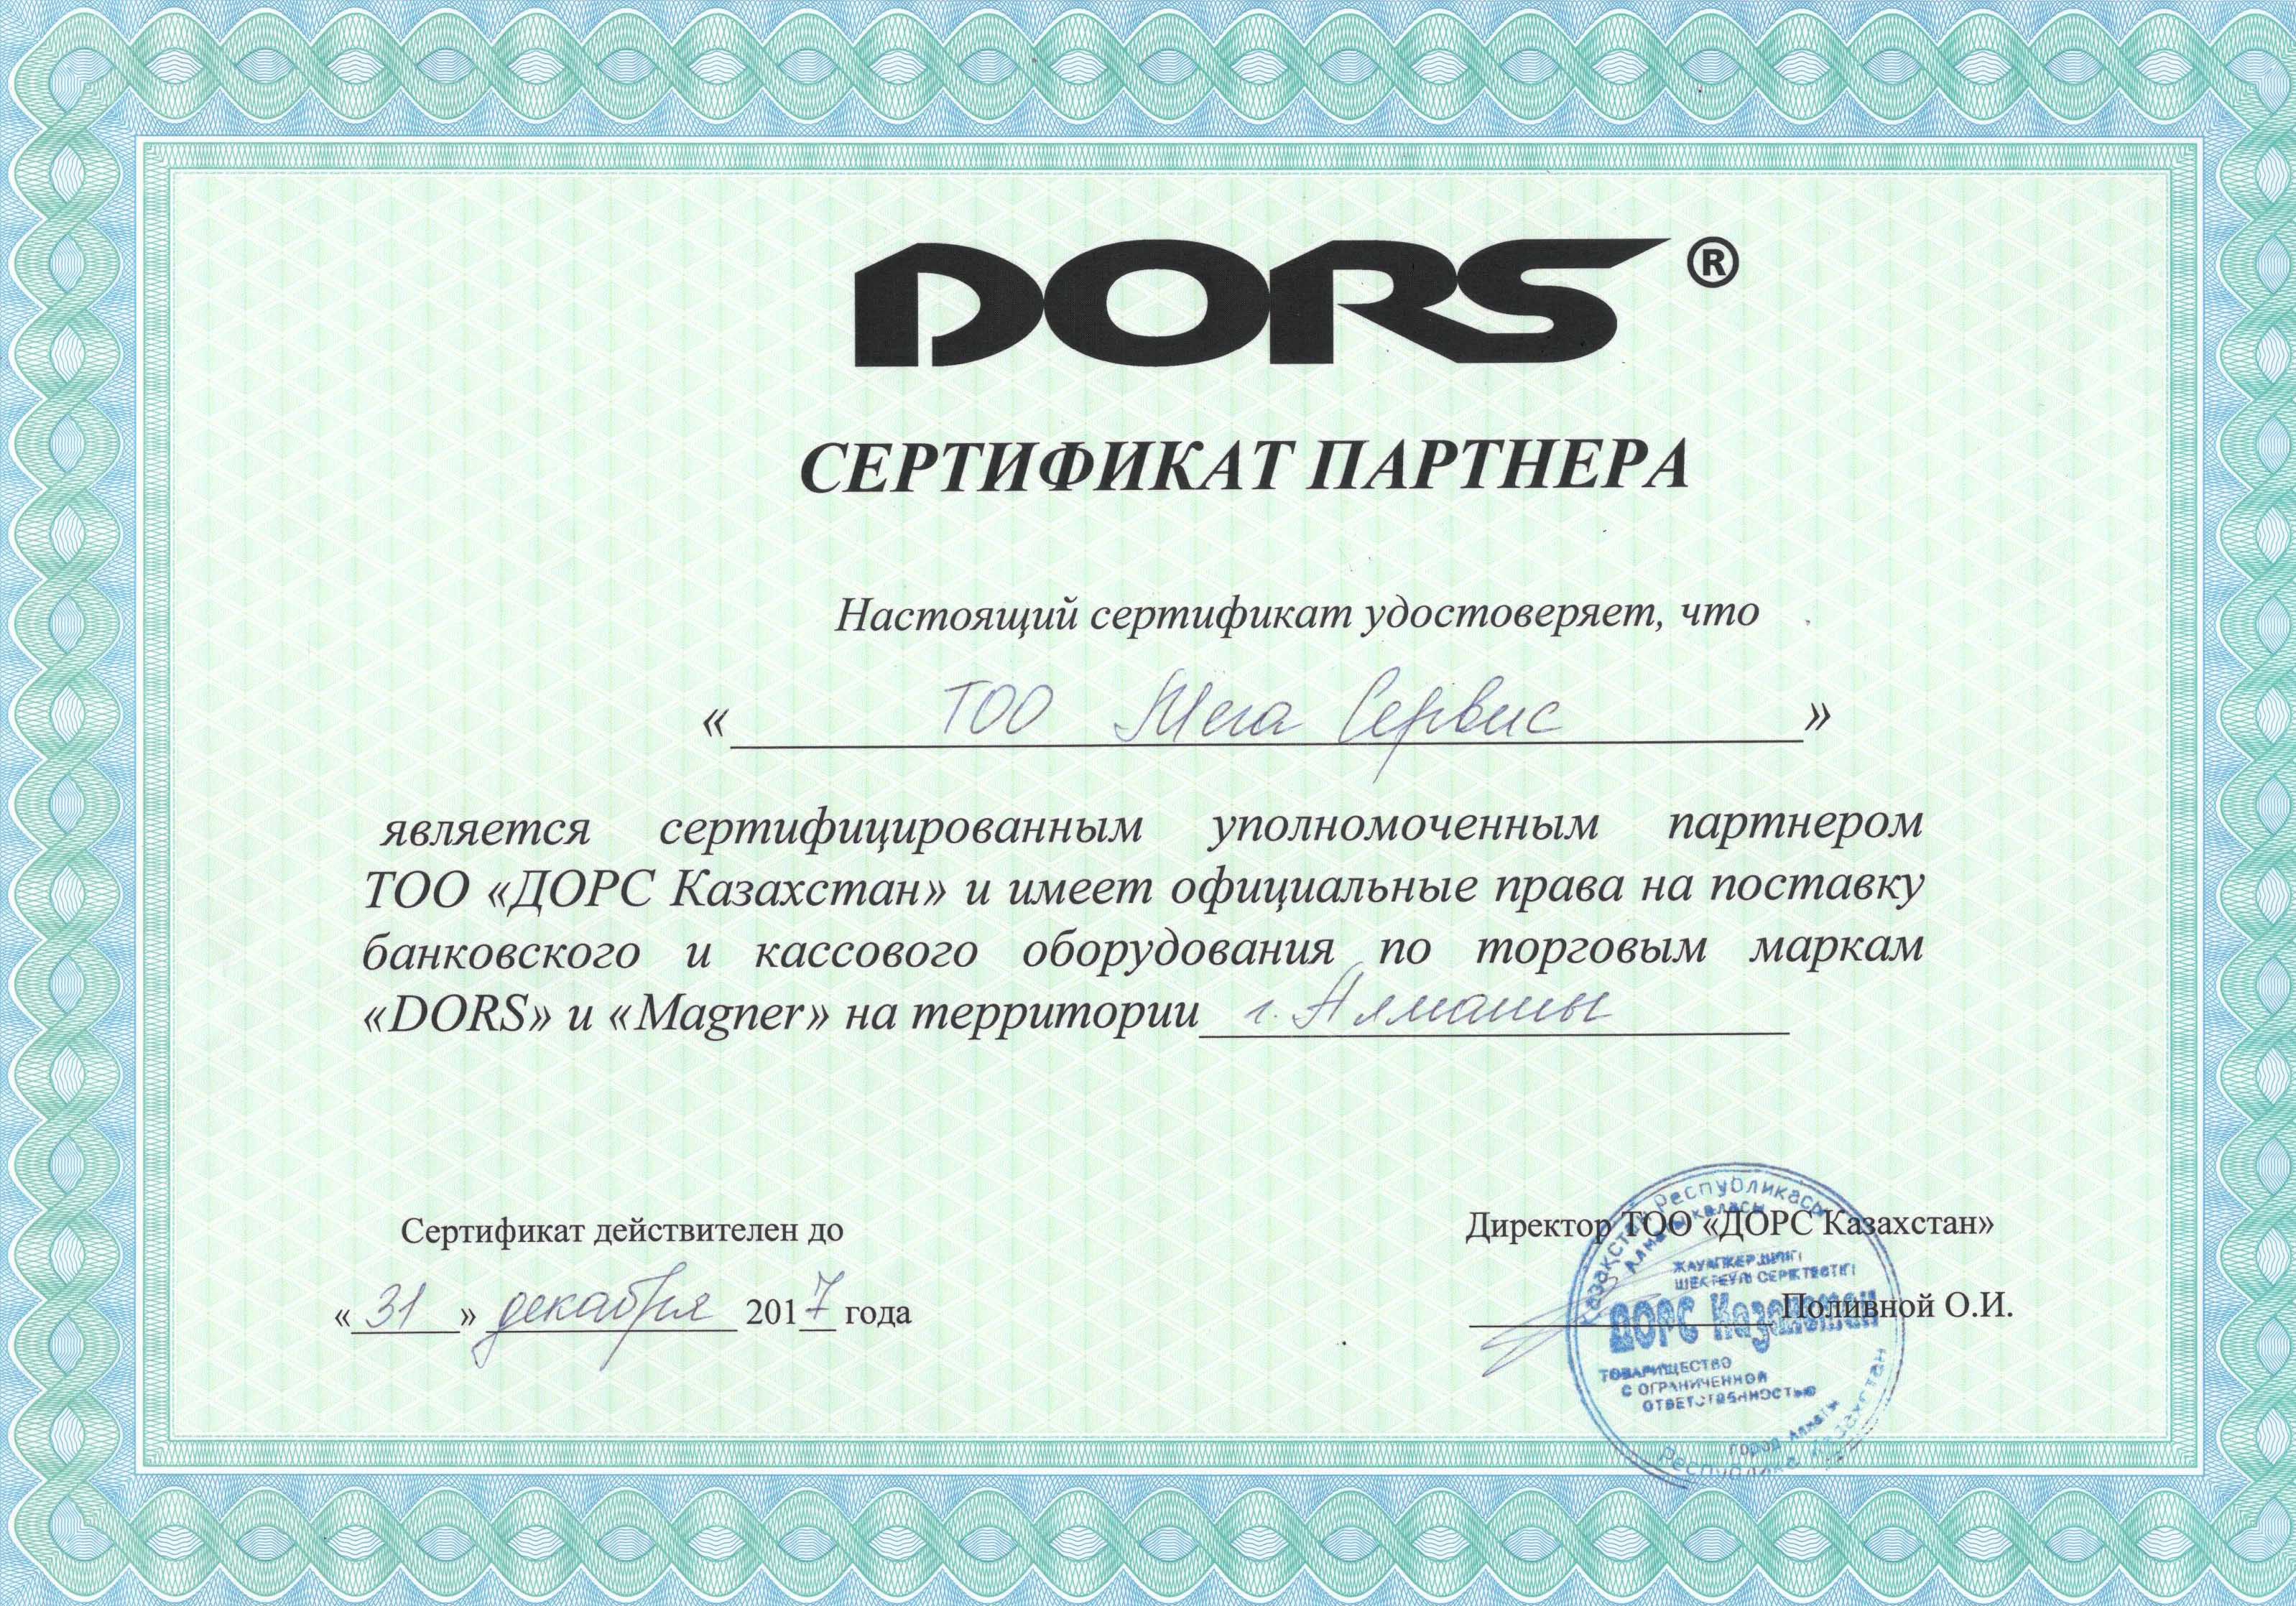 DORS®
СЕРТИФИКАТ ПАРТНЕРА
Настоящий сертификат удостоверяет, что
« ТОО Мега Сервис »
является сертифицированным уполномоченным партнером
ТОО «ДОРС Казахстан» и имеет официальные права на поставку
банковского и кассового оборудования по торговым маркам
«DORS» и «Magner» на территории г. Алматы
Сертификат действителен до
«31» декабря 2017 года
Директор ТОО «ДОРС Казахстан»
Поливной О.И.
Қазақстан Республикасы
Алматы қаласы
ЖАУАПКЕРШІЛІГІ
ШЕКТЕУЛІ СЕРІКТЕСТІГІ
ДОРС Казахстан
ТОВАРИЩЕСТВО
С ОГРАНИЧЕННОЙ
ОТВЕТСТВЕННОСТЬЮ
город Алматы
Республика Казахстан